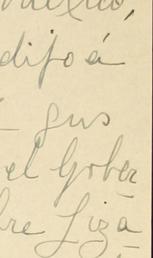 dijo á
gus
el Gober
bre Lizá